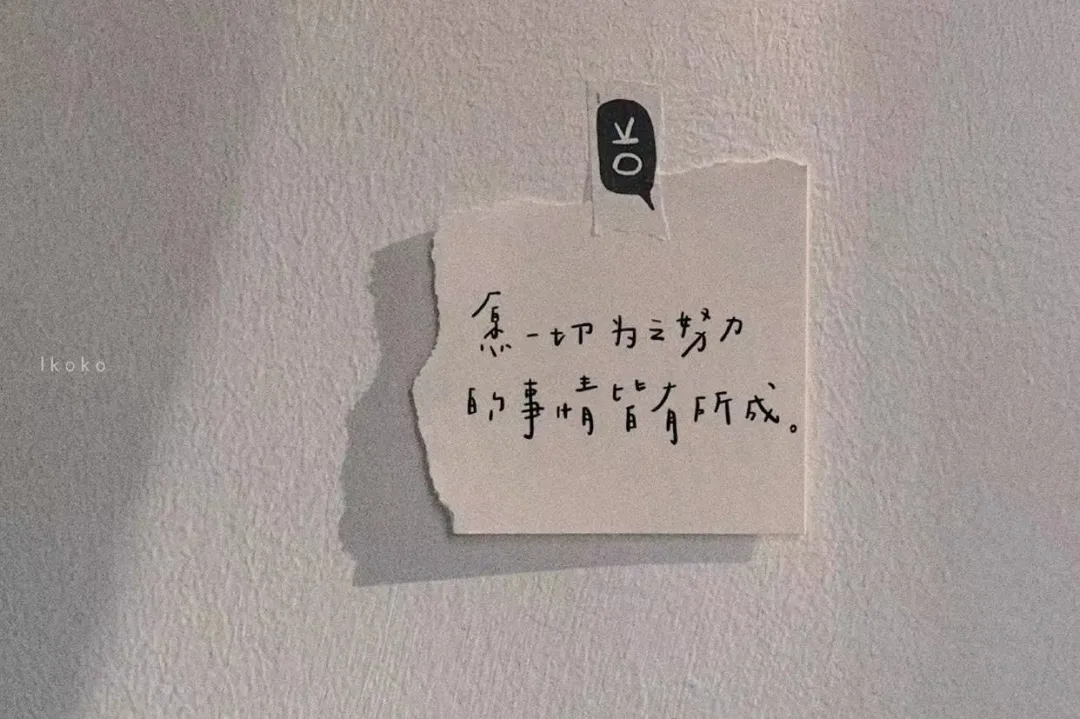 OK
愿一切为之努力
的事情皆有所成。
Ikoko